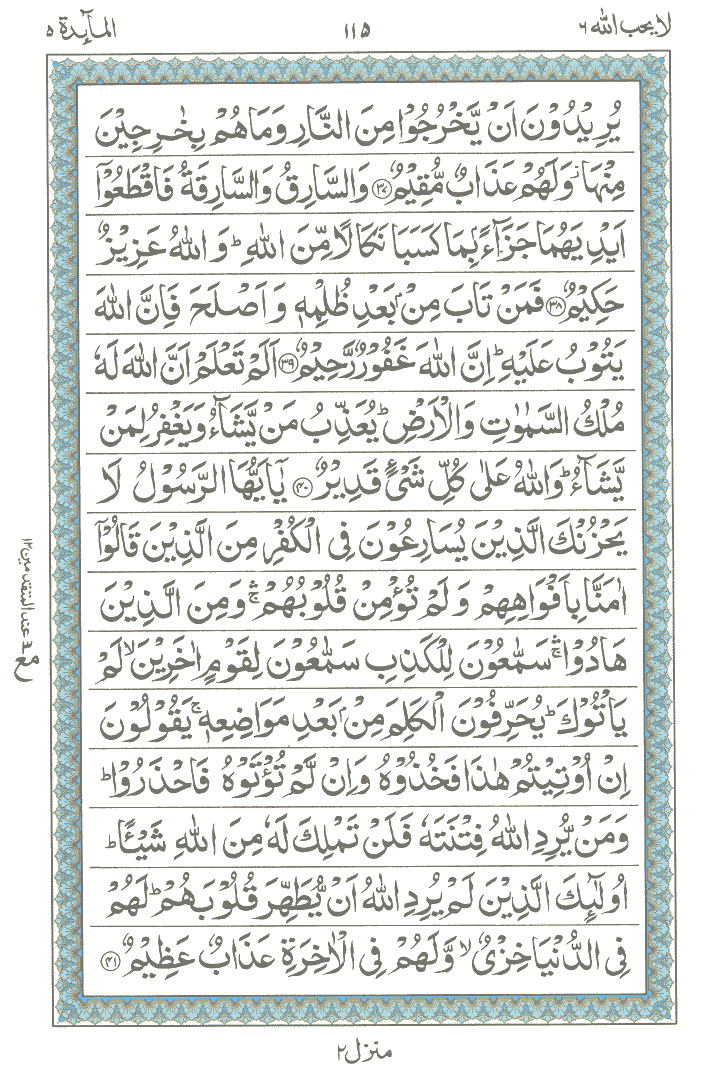 لا یحب اللہ ۶ ۱۱۵ المآئدة ۵
یُرِیۡدُوۡنَ اَنۡ یَّخۡرُجُوۡا مِنَ النَّارِ وَمَا هُمۡ بِخٰرِجِیۡنَ
مِنۡهَا ۫ وَلَهُمۡ عَذَابٌ مُّقِیۡمٌ ﴿۳۷﴾ وَالسَّارِقُ وَالسَّارِقَةُ فَاقۡطَعُوۡۤا
اَیۡدِیَهُمَا جَزَآءًۢ بِمَا كَسَبَا نَكَالًا مِّنَ اللّٰهِ ؕ وَاللّٰهُ عَزِیۡزٌ
حَكِیۡمٌ ﴿۳۸﴾ فَمَنۡ تَابَ مِنۡۢ بَعۡدِ ظُلۡمِهٖ وَاَصۡلَحَ فَاِنَّ اللّٰهَ
یَتُوۡبُ عَلَیۡهِ ؕ اِنَّ اللّٰهَ غَفُوۡرٌ رَّحِیۡمٌ ﴿۳۹﴾ اَلَمۡ تَعۡلَمۡ اَنَّ اللّٰهَ لَهٗ
مُلۡكُ السَّمٰوٰتِ وَالۡاَرۡضِ ؕ یُعَذِّبُ مَنۡ یَّشَآءُ وَیَغۡفِرُ لِمَنۡ
یَّشَآءُ ؕ وَاللّٰهُ عَلٰی كُلِّ شَیۡءٍ قَدِیۡرٌ ﴿۴۰﴾ یٰۤاَیُّهَا الرَّسُوۡلُ لَا
یَحۡزُنۡكَ الَّذِیۡنَ یُسَارِعُوۡنَ فِی الۡكُفۡرِ مِنَ الَّذِیۡنَ قَالُوۡۤا
اٰمَنَّا بِاَفۡوَاهِهِمۡ وَلَمۡ تُؤۡمِنۡ قُلُوۡبُهُمۡ ۚۛ وَمِنَ الَّذِیۡنَ
هَادُوۡا ۚۛ سَمّٰعُوۡنَ لِلۡكَذِبِ سَمّٰعُوۡنَ لِقَوۡمٍ اٰخَرِیۡنَ ۙ لَمۡ
یَاۡتُوۡكَ ؕ یُحَرِّفُوۡنَ الۡكَلِمَ مِنۡۢ بَعۡدِ مَوَاضِعِهٖ ۚ یَقُوۡلُوۡنَ
اِنۡ اُوۡتِیۡتُمۡ هٰذَا فَخُذُوۡهُ وَاِنۡ لَّمۡ تُؤۡتَوۡهُ فَاحۡذَرُوۡا ؕ
وَمَنۡ یُّرِدِ اللّٰهُ فِتۡنَتَهٗ فَلَنۡ تَمۡلِكَ لَهٗ مِنَ اللّٰهِ شَیۡـًٔا ؕ
اُولٰٓئِكَ الَّذِیۡنَ لَمۡ یُرِدِ اللّٰهُ اَنۡ یُّطَهِّرَ قُلُوۡبَهُمۡ ؕ لَهُمۡ
فِی الدُّنۡیَا خِزۡیٌ ۙ وَّلَهُمۡ فِی الۡاٰخِرَةِ عَذَابٌ عَظِیۡمٌ ﴿۴۱﴾
عند المتقدمین ۱۲
منزل ۲